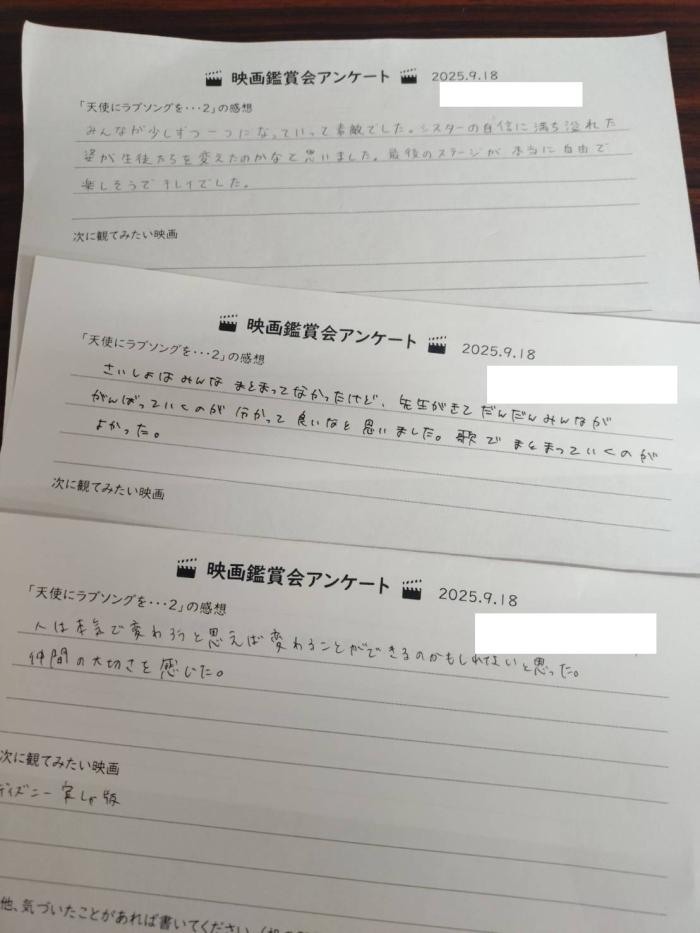 映画鑑賞会アンケート 2025.9.18
「天使にラブソングを・・・2」の感想
みんなが少しずつ一つになっていって素敵でした。シスターの自信に満ち溢れた
姿が生徒たちを変えたのかなと思いました。最後のステージが本当に自由で
楽しそうでキレイでした。
次に観てみたい映画
映画鑑賞会アンケート 2025.9.18
「天使にラブソングを・・・2」の感想
さいしょはみんなまとまってなかったけど、先生がきてだんだんみんなが
がんばっていくのが分かって良いなと思いました。歌でまとまっていくのが
よかった。
次に観てみたい映画
映画鑑賞会アンケート 2025.9.18
「天使にラブソングを・・・2」の感想
人は本気で変わろうと思えば変わることができるのかもしれないと思った。
仲間の大切さを感じた。
次に観てみたい映画
ディズニー実しゃ版
他、気づいたことがあれば書いてください